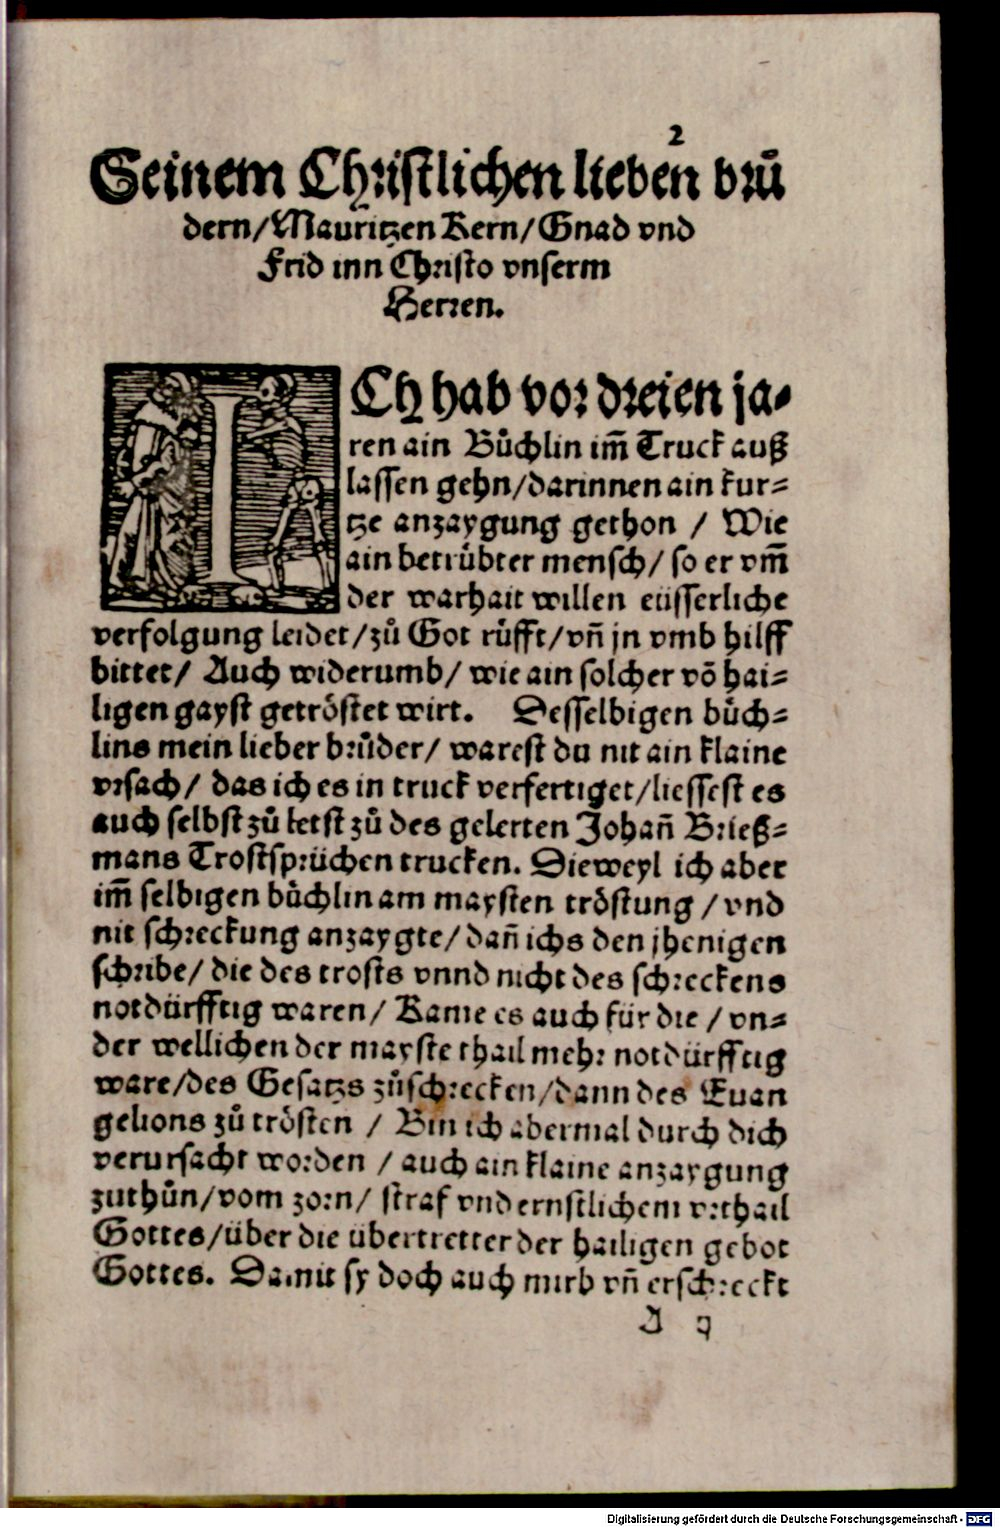 2
Seinem Christlichen lieben brů
dern/Mauritzen Kern/Gnad vnd
Frid inn Christo vnserm
Herren.
ICh hab vor dreien ja-
ren ain Bůchlin im̃ Truck auß
lassen gehn/darinnen ain kur-
tze anzaygung gethon / Wie
ain betrůbter mensch/ so er vm̃
der warhait willen eüsserliche
verfolgung leidet/zů Got růfft/vñ jn vmb hilff
bittet/ Auch widerumb/ wie ain solcher võ hai-
ligen gayst getröstet wirt. Desselbigen bůch-
lins mein lieber brůder/ warest du nit ain klaine
vrsach/ das ich es in truck verfertiget/liessest es
auch selbst zů letst zů des gelerten Johañ Brieß-
mans Trostsprüchen trucken. Dieweyl ich aber
im̃ selbigen bůchlin am maysten tröstung / vnd
nit schreckung anzaygte/ dañ ichs den jhenigen
schribe/ die des trosts vnnd nicht des schreckens
notdürfftig waren/ Kame es auch für die / vn-
der wellichen der mayste thail mehr notdürfftig
ware/des Gesatzs zůschrecken/dann des Euan
gelions zů trösten / Bin ich abermal durch dich
verursacht worden / auch ain klaine anzaygung
zuthůn/vom zorn/ straf vnd ernstlichem vrthail
Gottes/über die übertretter der hailigen gebot
Gottes. Damit sy doch auch mirb vñ erschreckt
A ij
Digitalisierung gefördert durch die Deutsche Forschungsgemeinschaft - DFG